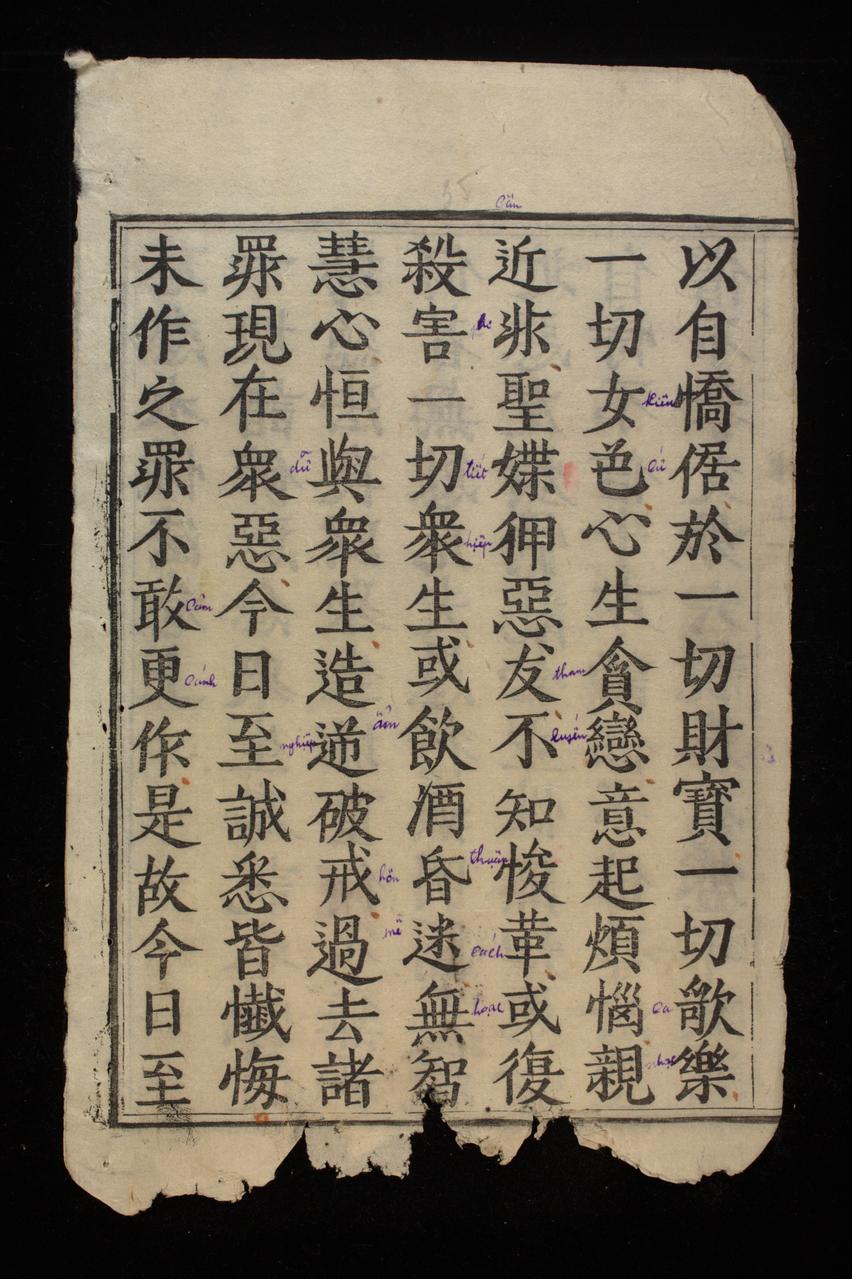 以自憍倨於一切財寶一切歌樂
一切女色心生貪戀意起煩惱親
近非聖媟狎惡友不知悛革或復
殺害一切衆生或飲酒昏迷無智
慧心恒與衆生造逆破戒過去諸
罪現在衆惡今日至誠悉皆懺悔
未作之罪不敢更作是故今日至
cận
kiêu
cứ
ca
phi
tiết
hiệp
tham
luyến
thuyên
cách
hoặc
ẩm
hôn
mê
dữ
nghịch
cảm
cánh